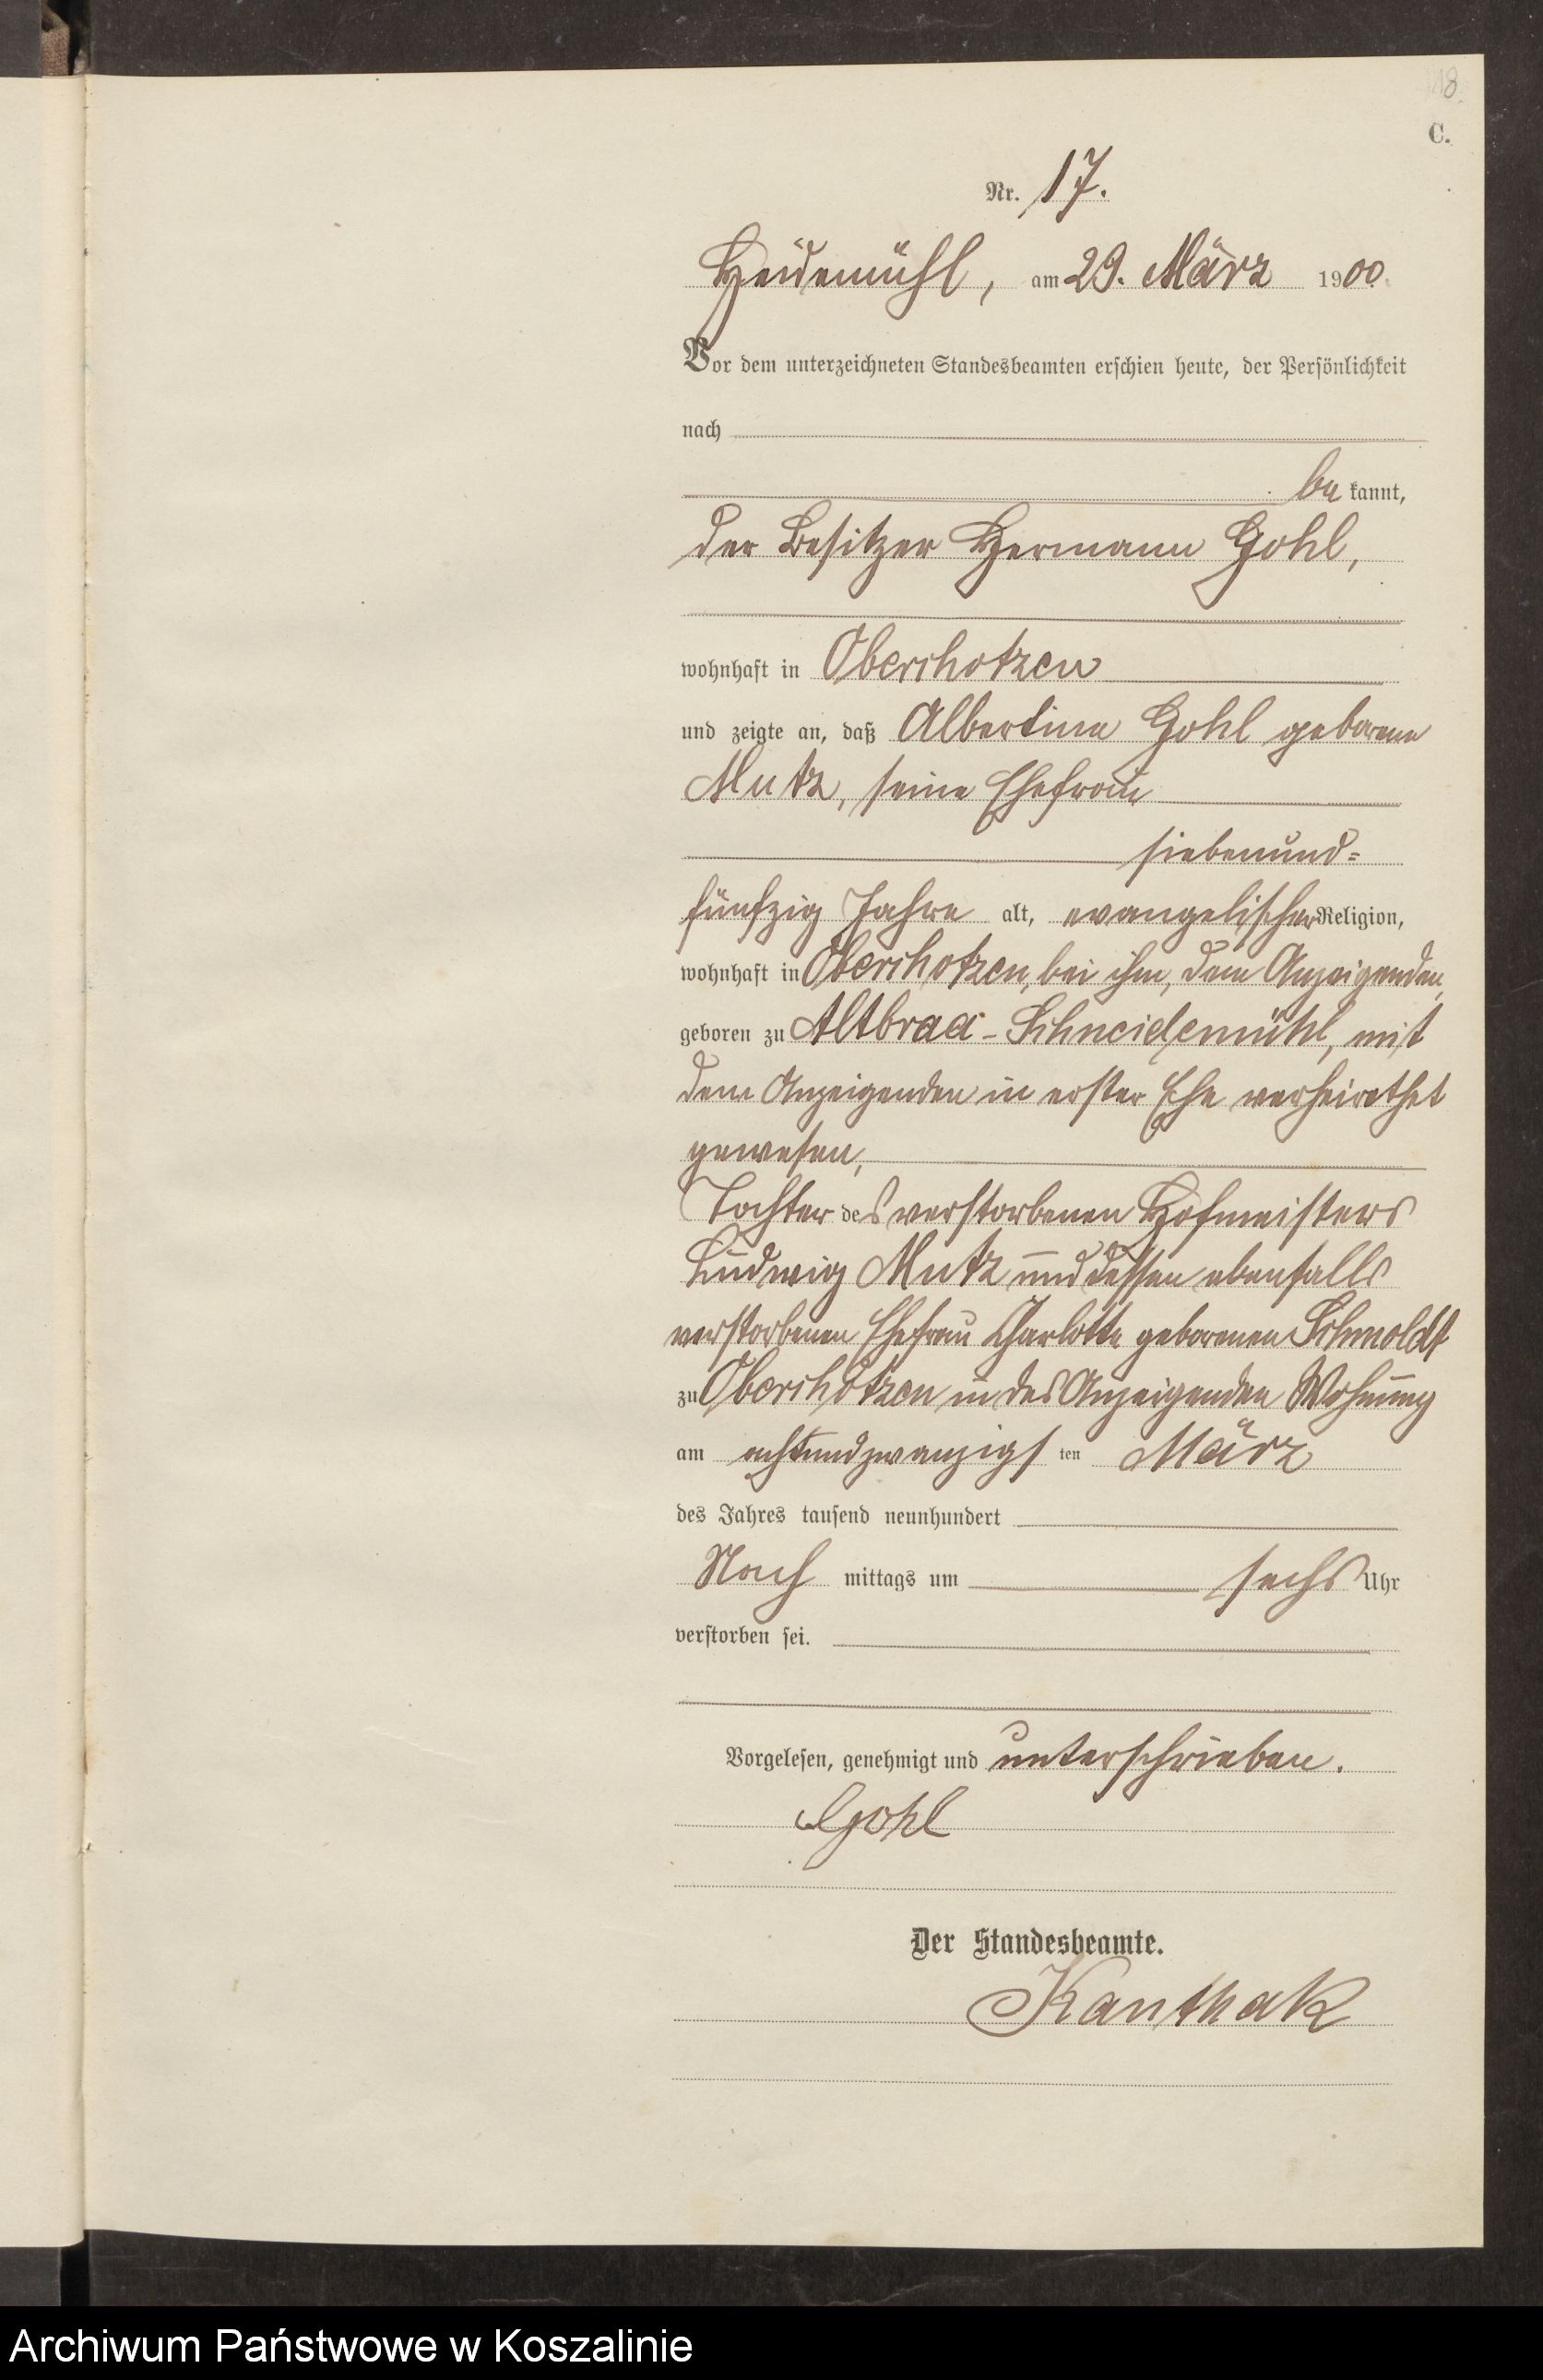 18.
C.
Nr. 17.
Heidemühl, am 29. März 1900.
Vor dem unterzeichneten Standesbeamten erschien heute, der Persönlichkeit
nach
be kannt,
der Besitzer Hermann Gohl,
wohnhaft in Oberchotzen
und zeigte an, daß Albertine Gohl geborene
Mutz, seine Ehefrau
siebenund=
fünfzig Jahre alt, evangelischer Religion,
wohnhaft in Oberchotzen, bei ihm, dem Anzeigenden,
geboren zu Altbraa-Schneidemühl, mit
dem Anzeigenden in erster Ehe verheirathet
gewesen,
Tochter des verstorbenen Hofmeisters
Ludwig Mutz und dessen ebenfalls
verstorbenen Ehefrau Charlotte geborenen Schmoldt
zu Oberchotzen in des Anzeigenden Wohnung
am achtundzwanzigs ten März
des Jahres tausend neunhundert
Nach mittags um sechs Uhr
verstorben sei.
Vorgelesen, genehmigt und unterschrieben.
Gohl
Der Standesbeamte.
Kanthak
Archiwum Państwowe w Koszalinie